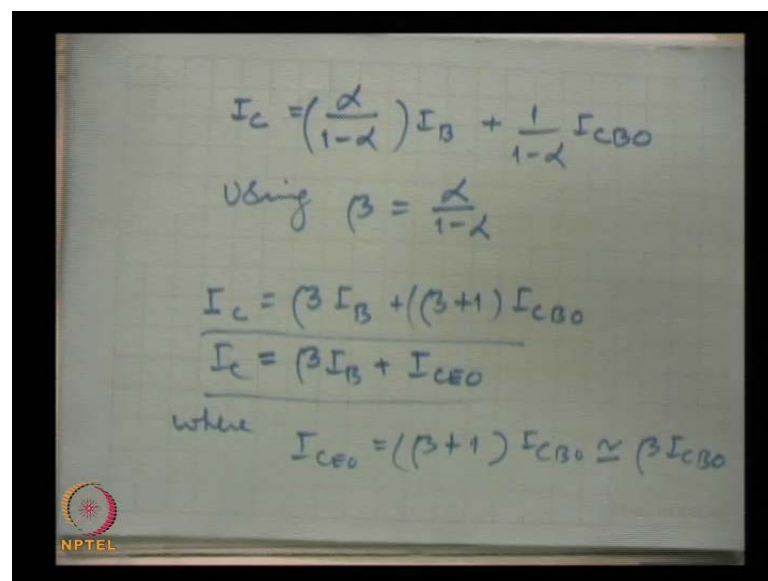 I_C = (α/(1-α)) I_B + 1/(1-α) I_CBO
Using β = α/(1-α)
I_C = β I_B + (β+1) I_CBO
I_C = β I_B + I_CEO
where
I_CEO = (β+1) I_CBO ≃ β I_CBO
NPTEL